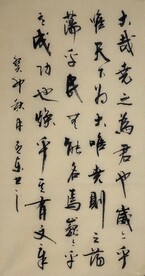 大哉堯之為君也巍々乎
唯天為大唯堯則之蕩
蕩乎民無能名焉巍々乎
其成功也煥乎其有文章
癸卯秋月